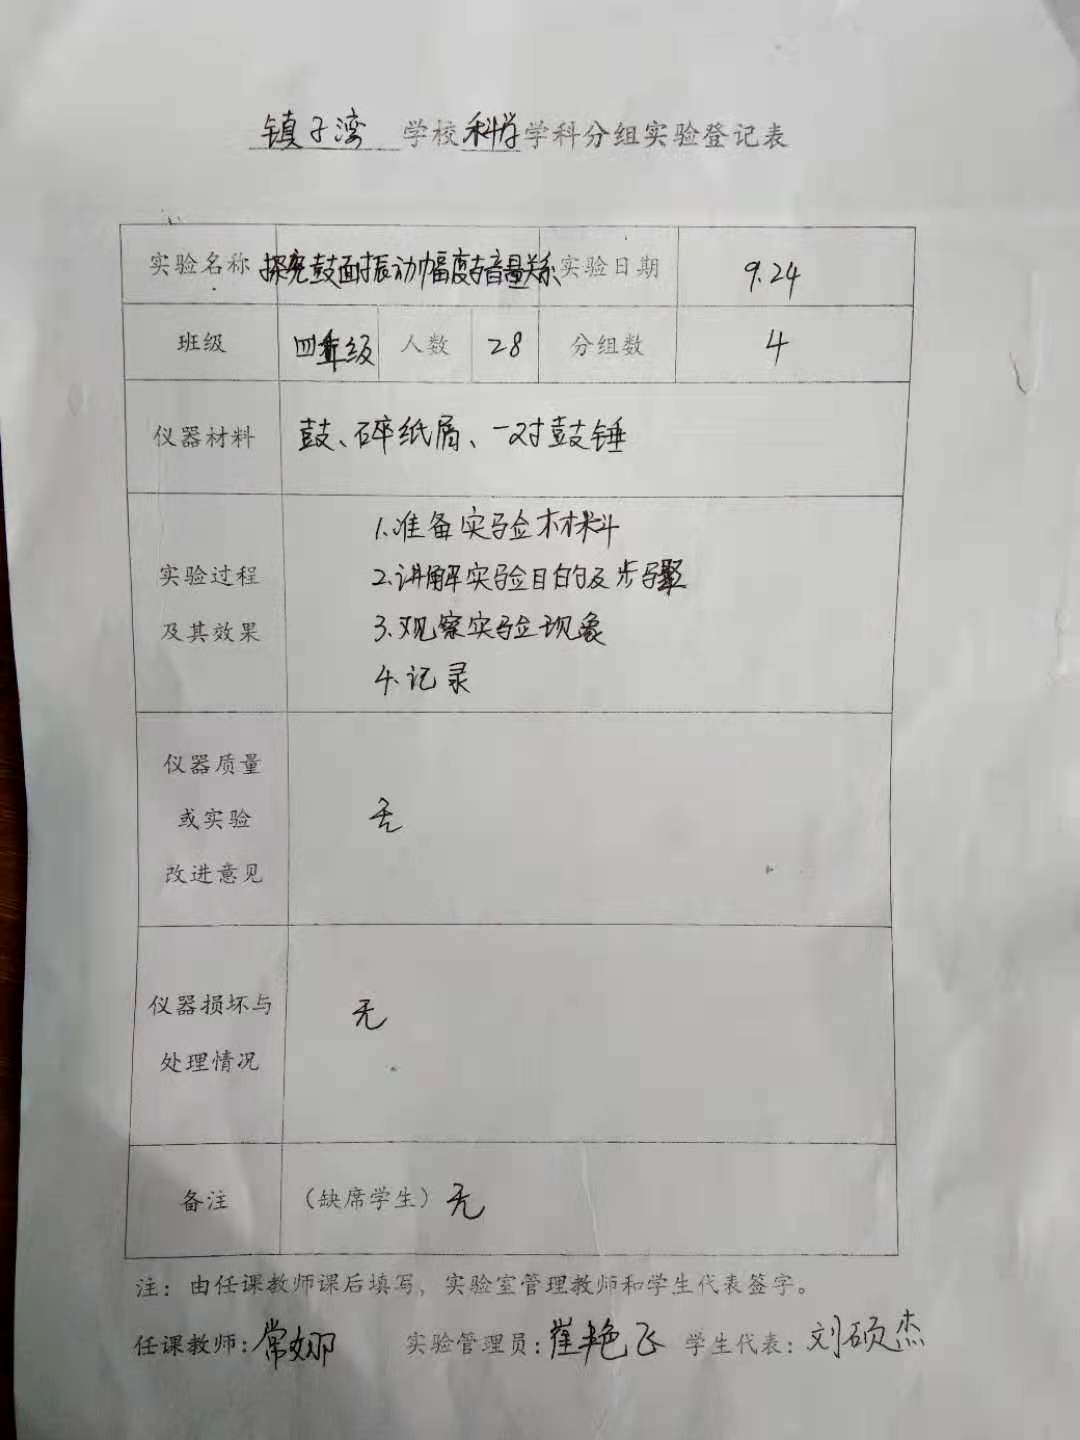 镇子湾 学校科学学科分组实验登记表
实验名称 探究鼓面振动幅度与音量关系 实验日期 9.24
班级 四年级 人数 28 分组数 4
仪器材料 鼓、碎纸屑、一对鼓锤
实验过程
及其效果
1.准备实验材料
2.讲解实验目的及步骤
3.观察实验现象
4.记录
仪器质量
或实验
改进意见
无
仪器损坏与
处理情况
无
备注 （缺席学生）无
注：由任课教师课后填写，实验室管理教师和学生代表签字。
任课教师：常娜 实验管理员：崔艳飞 学生代表：刘硕杰